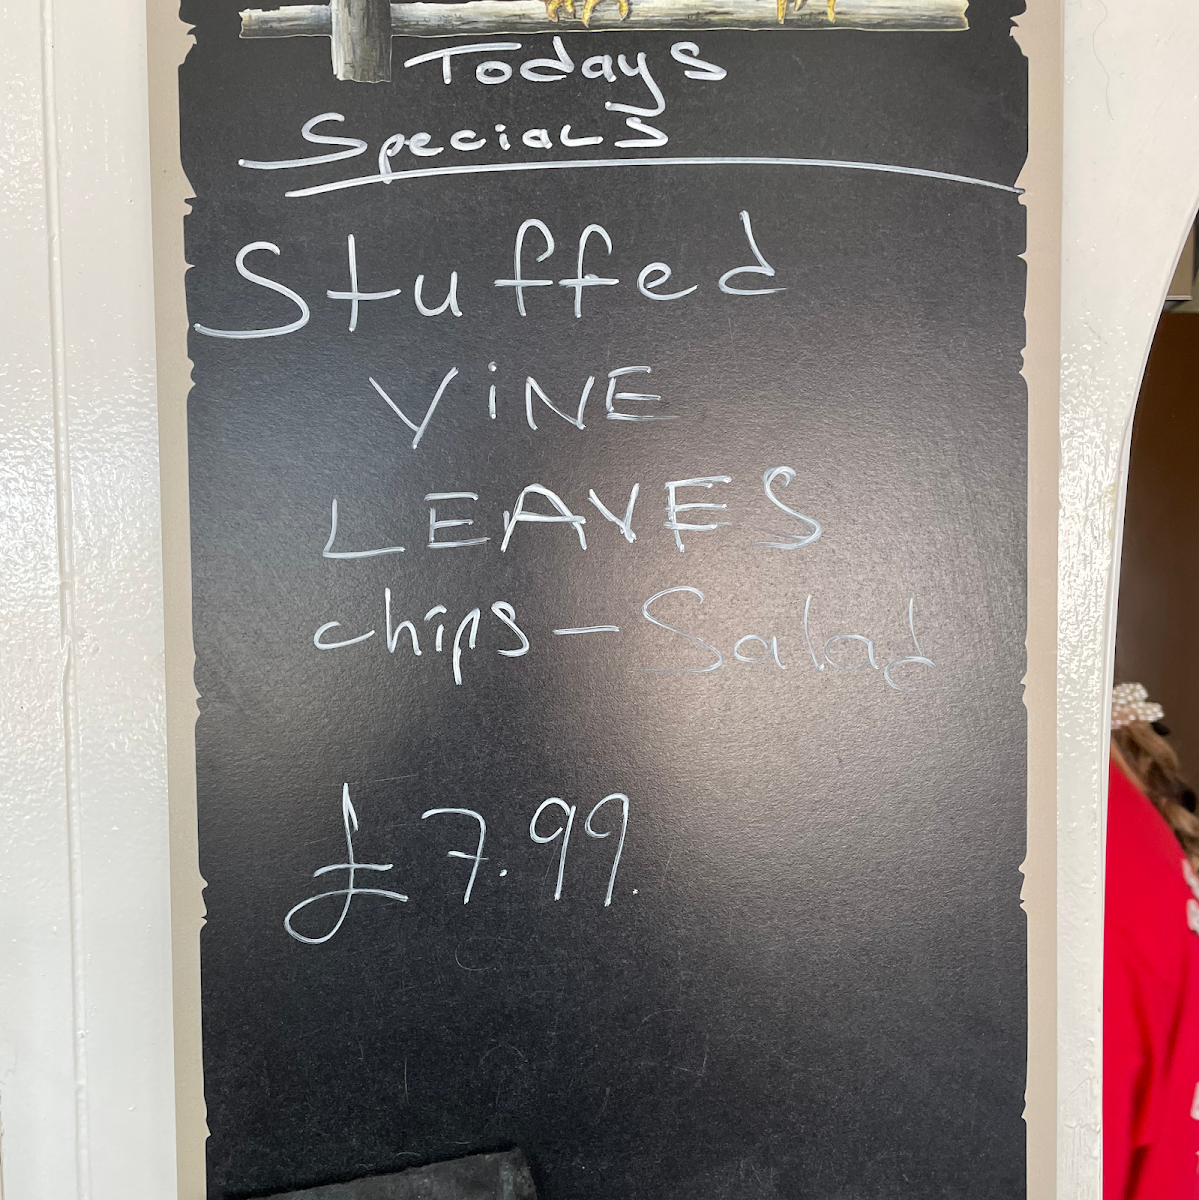 Todays
Specials
Stuffed
ViNE
LEAVES
chips - Salad
£7.99.